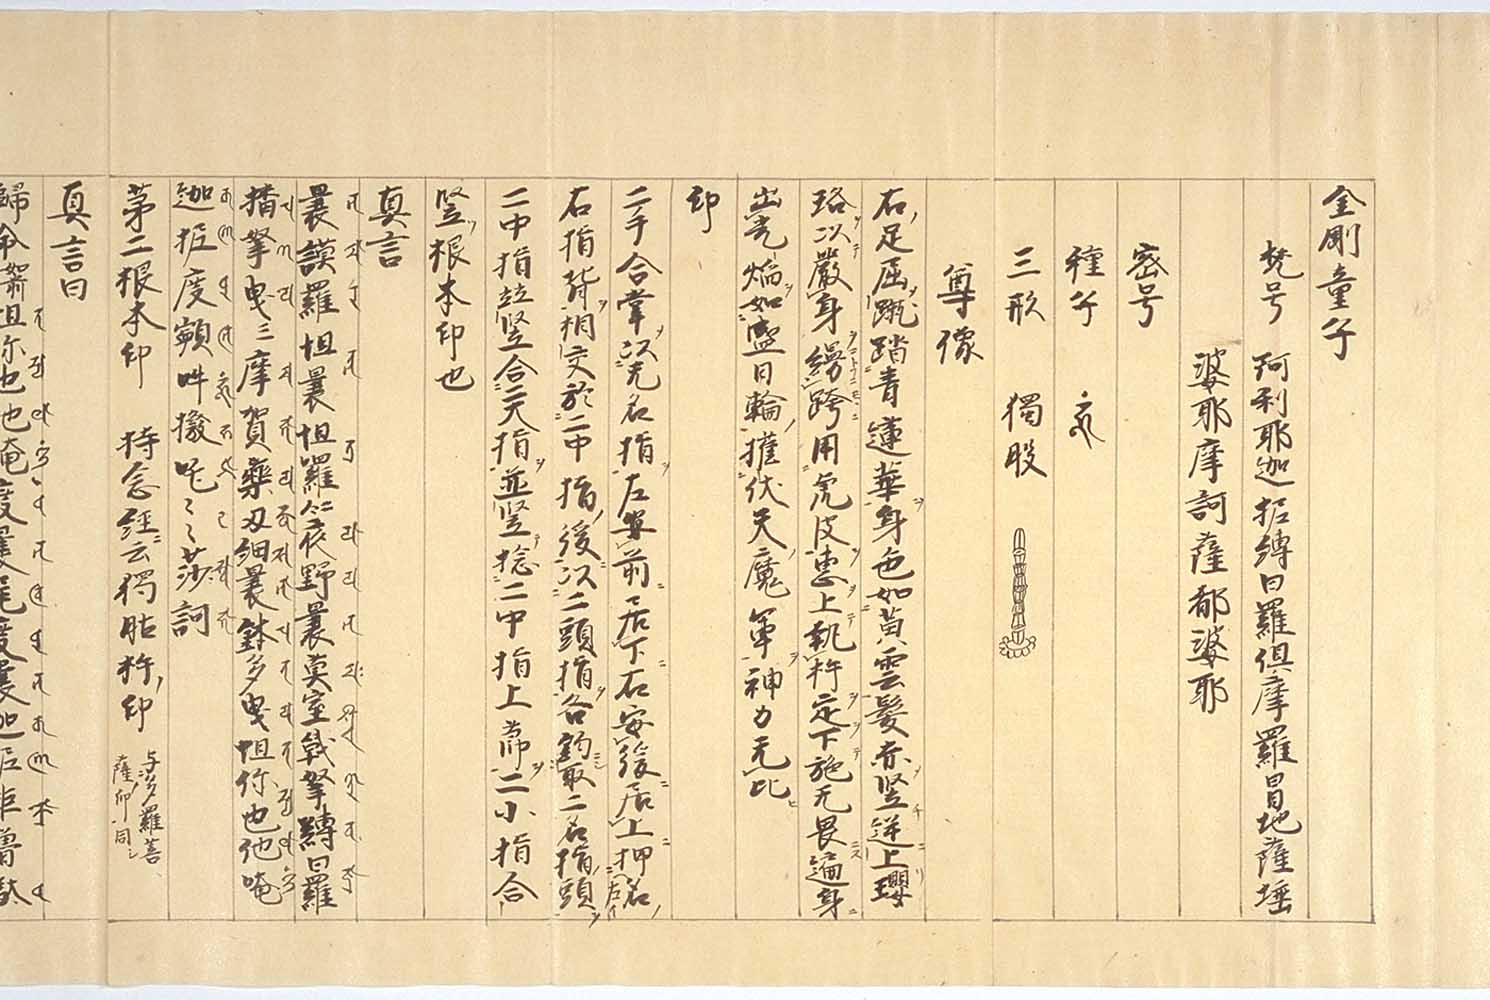 金剛童子
梵号 阿利耶迦抳縛日羅倶摩羅冒地薩埵
婆耶摩訶薩都婆耶
密号
種子
三形 獨股
尊像
右足屈蹴踏青蓮華身色如黄雲髪赤竪逆上瓔
珞以嚴身繒跨用虎皮恵上執杵定下施无畏遍身
出光焔如盛日輪摧伏天魔軍神力无比
印
二手合掌以无名指左安前居下右安後居上押名
右指背相交於二中指後以二頭指各鈎取二名指頭
二中指竝竪合二大指並竪捻二中指上節二小指合
竪根本印也
真言
曩謨羅怛曩怛羅夜野曩莫室戦拏縛日羅
播拏曳三摩賀藥乃細曩鉢多曳怛你也他唵
迦抳度顐吽撥吒〻〻莎訶
第二根本印 持念経云獨股杵印 与多羅菩
薩印同
真言曰
歸命 怛你也他唵度曩尾度曩迦抳矩嚕駄